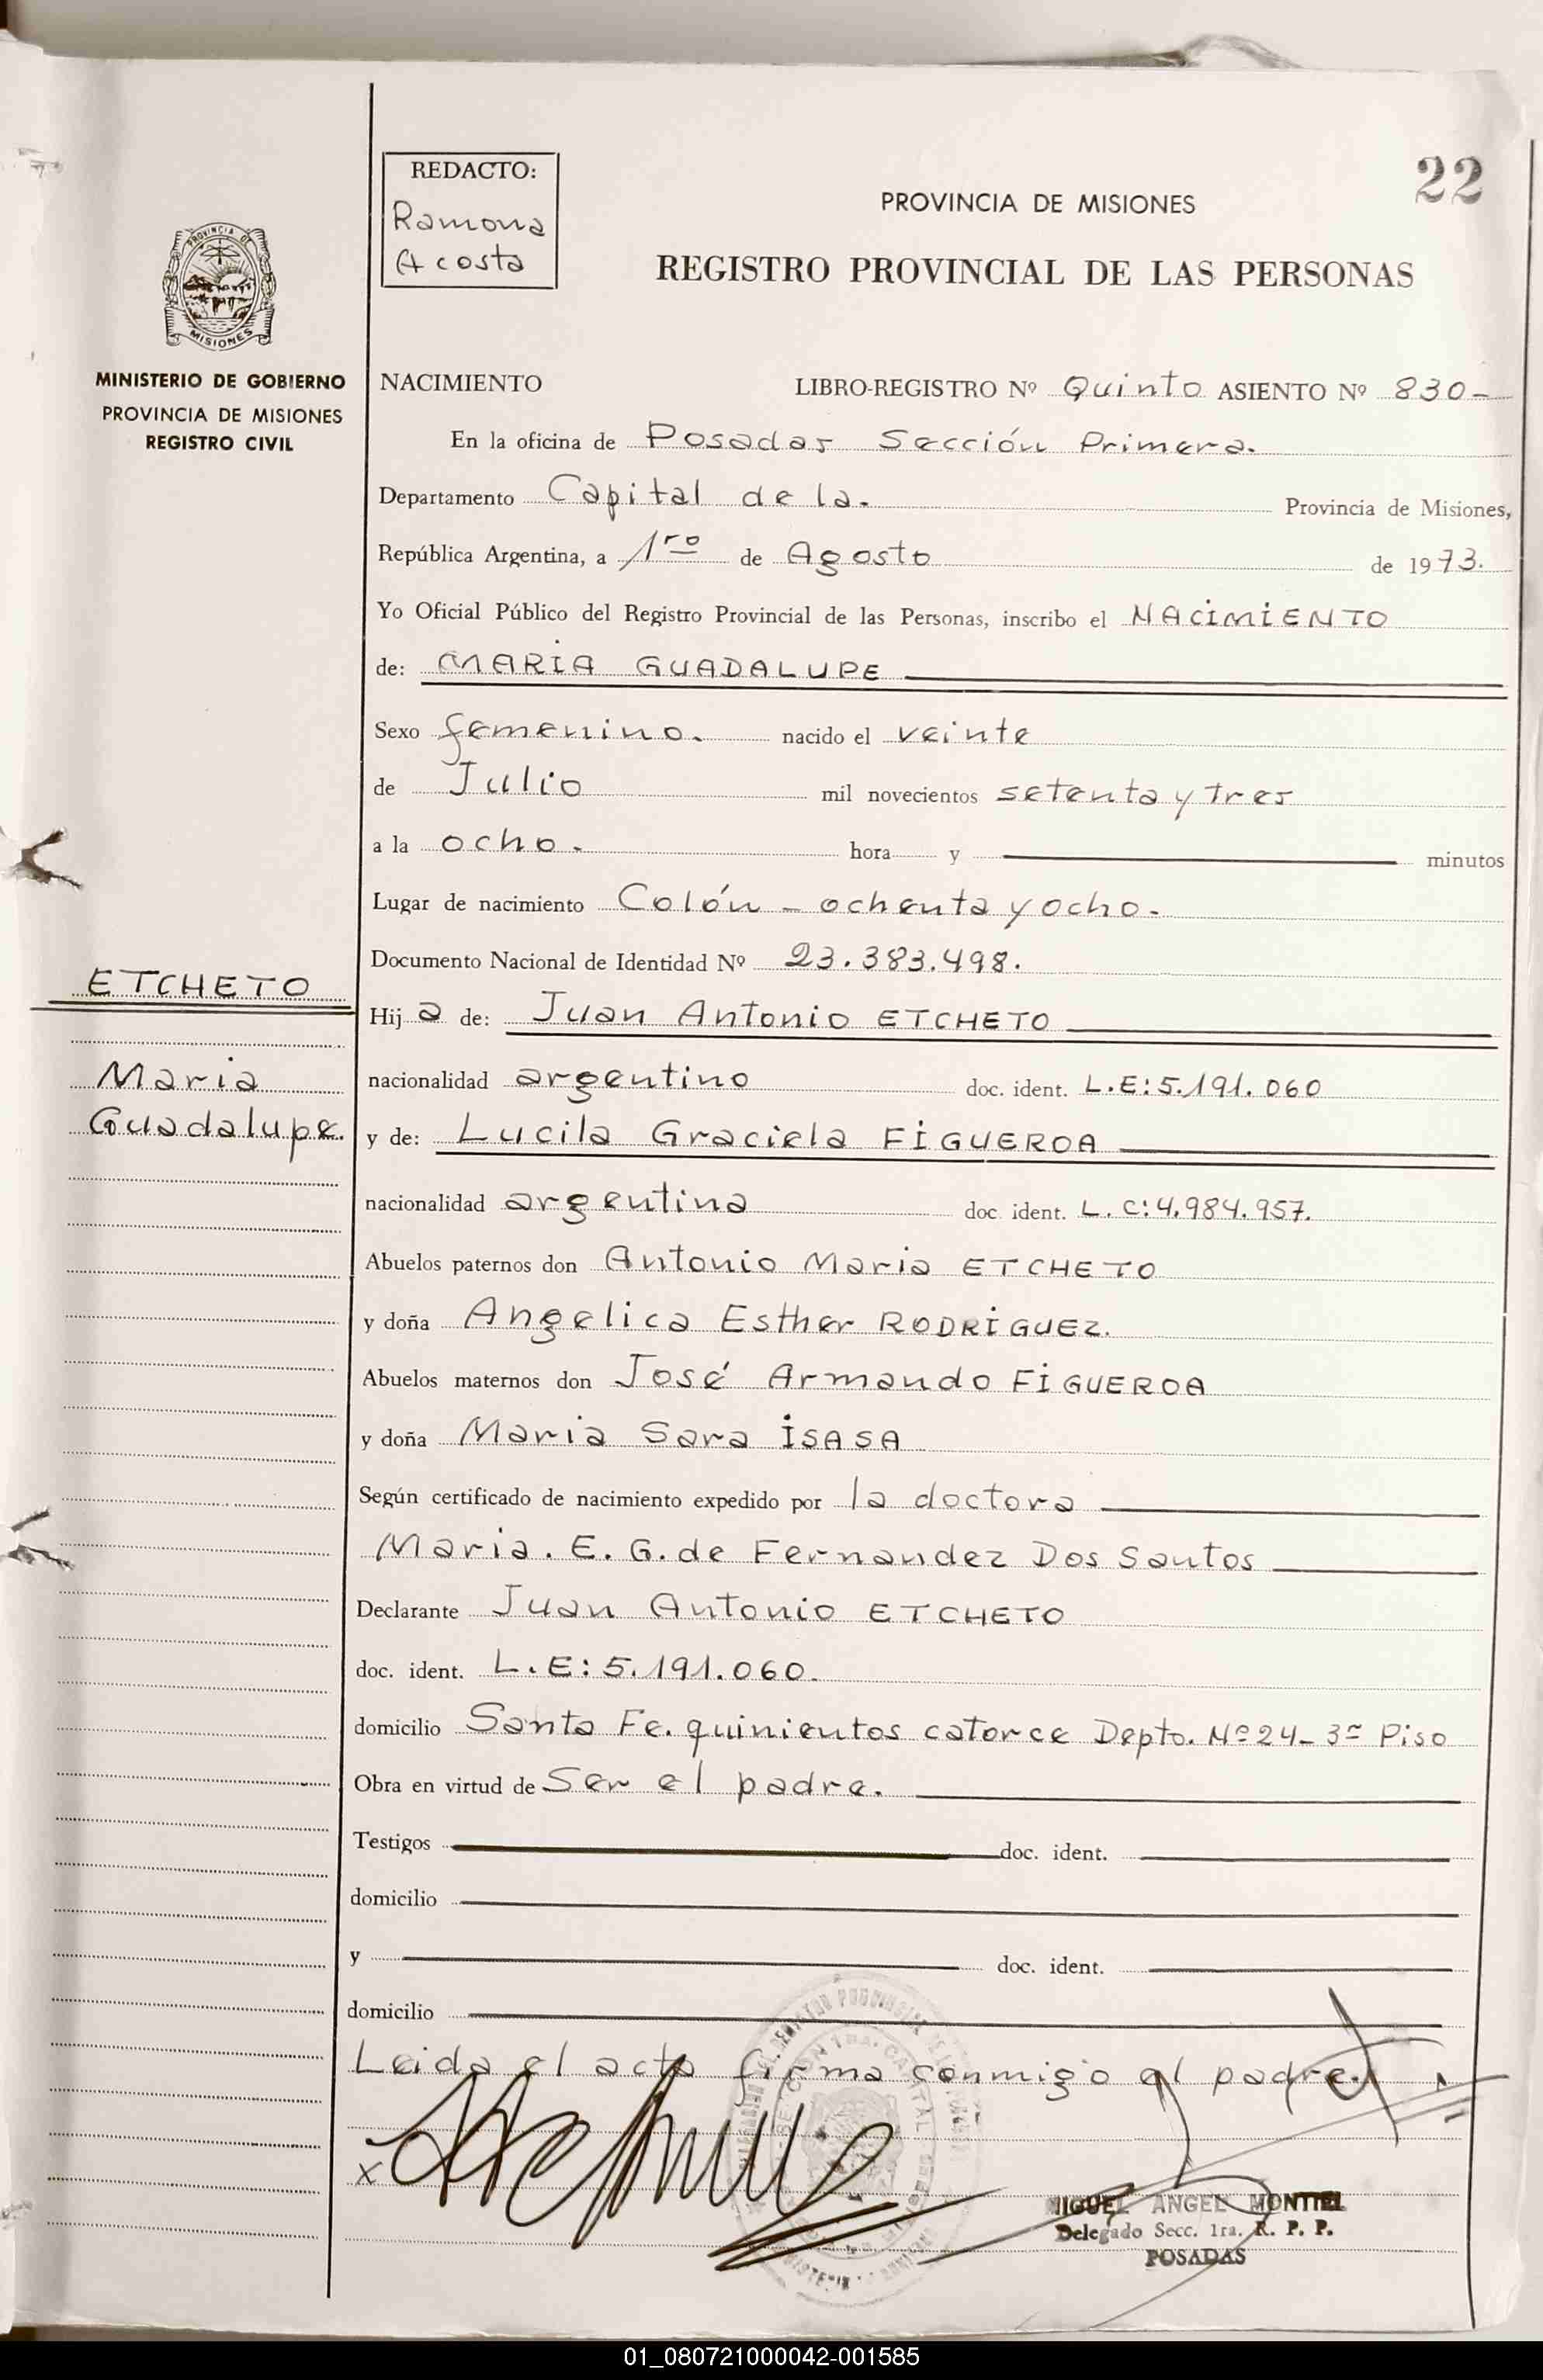 22
REDACTO:
Ramona
Acosta
PROVINCIA DE MISIONES
REGISTRO PROVINCIAL DE LAS PERSONAS
PROVINCIA DE
MISIONES
MINISTERIO DE GOBIERNO
PROVINCIA DE MISIONES
REGISTRO CIVIL
NACIMIENTO LIBRO-REGISTRO Nº Quinto ASIENTO Nº 830-
En la oficina de Posadas Sección Primera.
Departamento Capital de la. Provincia de Misiones,
República Argentina, a 1ro de Agosto de 1973.
Yo Oficial Público del Registro Provincial de las Personas, inscribo el NACIMIENTO
de: MARIA GUADALUPE
Sexo femenino. nacido el veinte
de Julio mil novecientos setenta y tres
a la ocho. hora y minutos
Lugar de nacimiento Colón - ochenta y ocho.
Documento Nacional de Identidad Nº 23.383.498.
ETCHETO
Maria
Guadalupe.
Hija de: Juan Antonio ETCHETO
nacionalidad argentino doc. ident. L.E:5.191.060
y de: Lucila Graciela FIGUEROA
nacionalidad argentina doc. ident. L.C:4.984.957.
Abuelos paternos don Antonio Maria ETCHETO
y doña Angelica Esther RODRIGUEZ.
Abuelos maternos don José Armando FIGUEROA
y doña Maria Sara ISASA
Según certificado de nacimiento expedido por la doctora
Maria. E. G. de Fernandez Dos Santos
Declarante Juan Antonio ETCHETO
doc. ident. L.E:5.191.060.
domicilio Santa Fe. quinientos catorce Depto. Nº24- 3er Piso
Obra en virtud de Ser el padre.
Testigos doc. ident.
domicilio
y doc. ident.
domicilio
Leida el acta firma conmigo el padre.
x
MIGUEL ANGEL MONTIEL
Delegado Secc. 1ra. R. P. P.
POSADAS
01_080721000042-001585